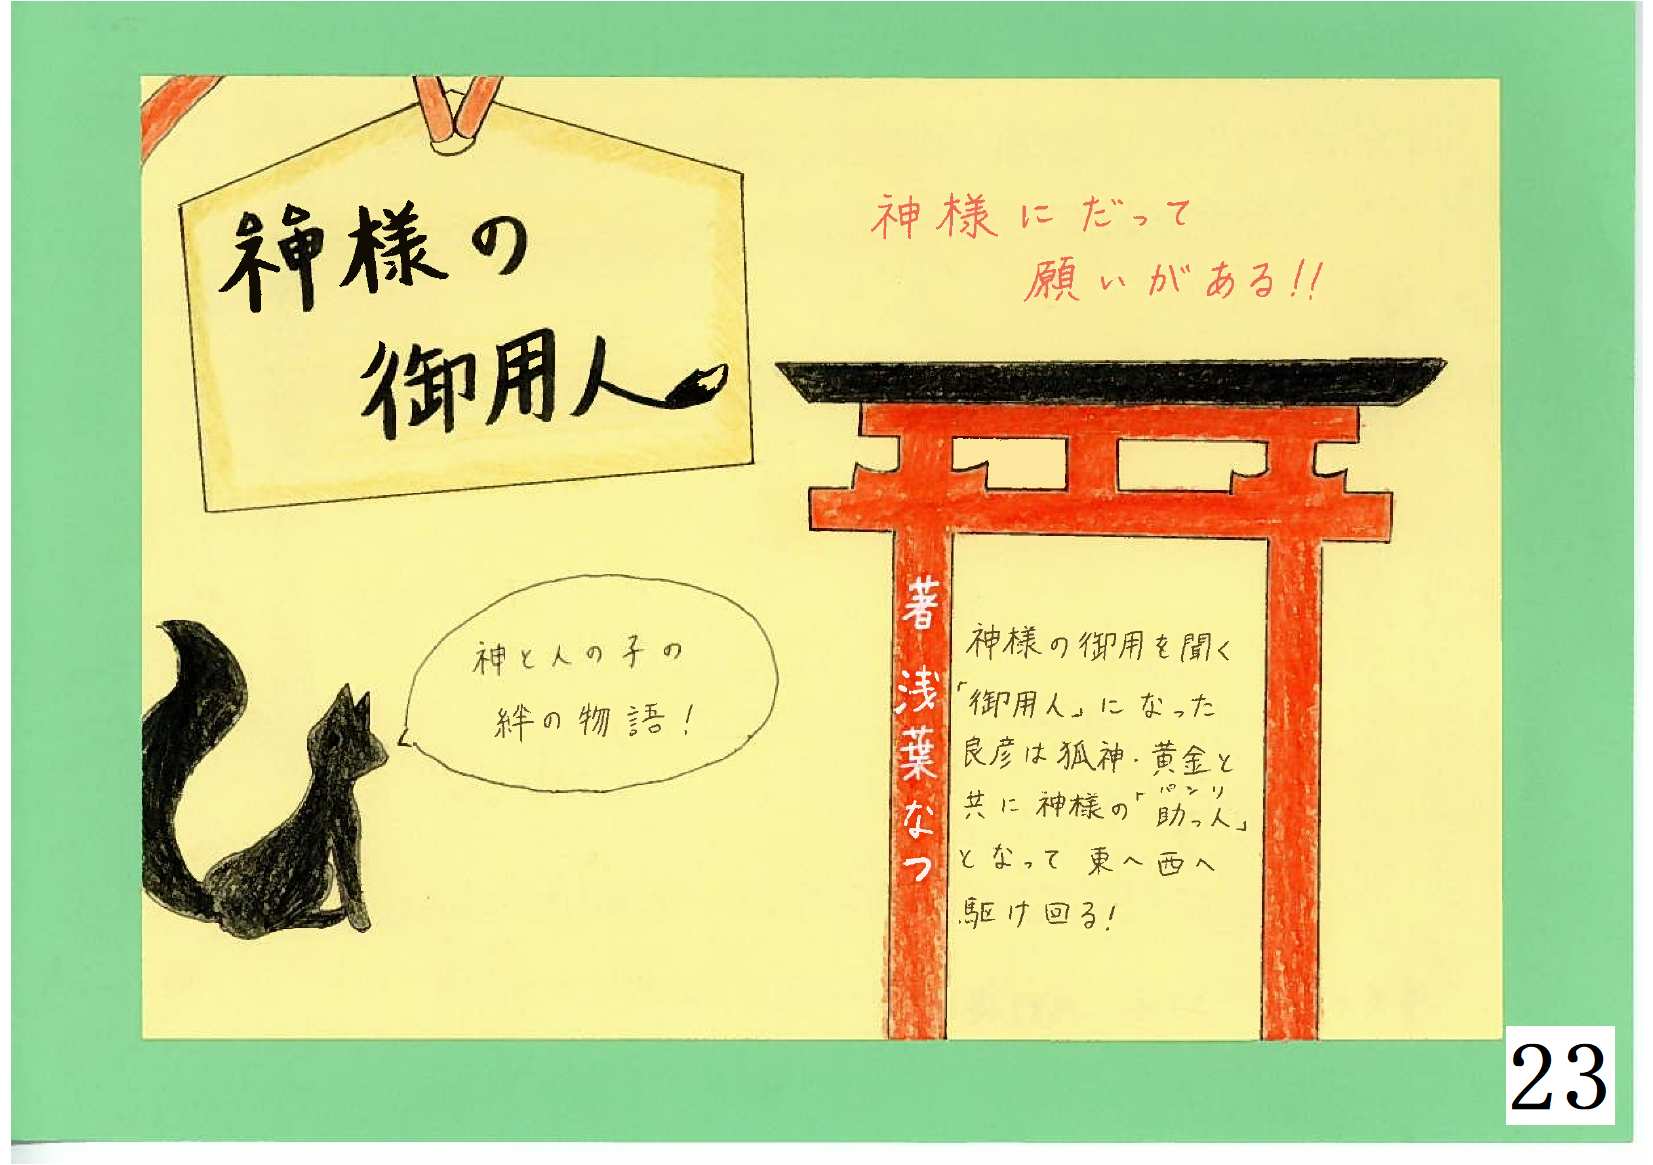 神様の
御用人
神様にだって
願いがある!!
神と人の子の
絆の物語!
著 浅葉なつ
神様の御用を聞く
「御用人」になった
良彦は狐神・黄金と
共に神様の「助っ人」
パシリ
となって東へ西へ
駆け回る!
23